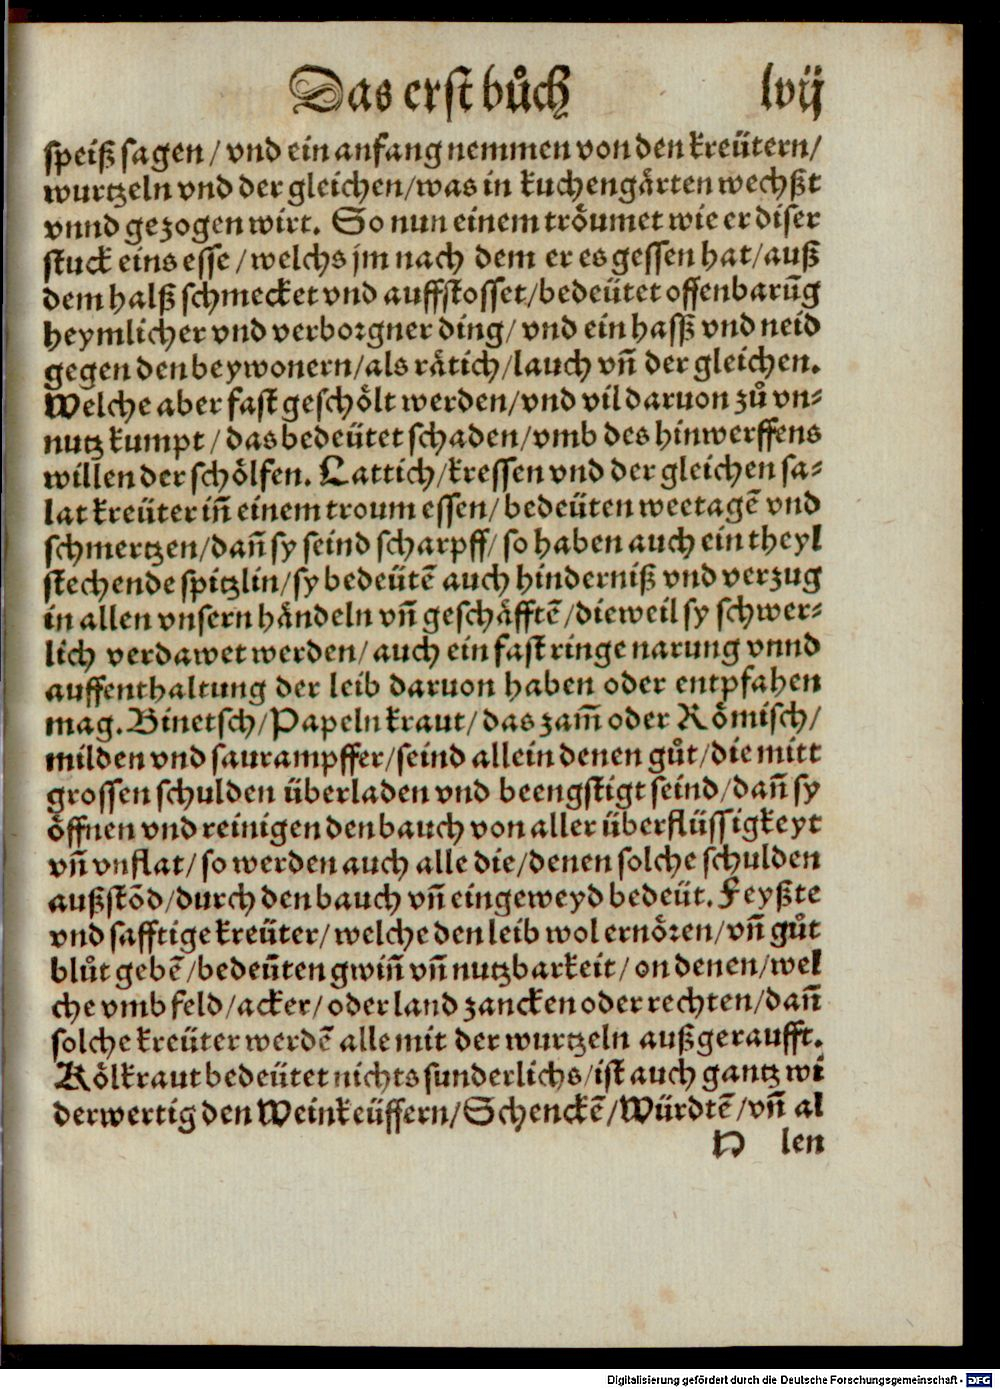 Das erst bůch lvij
speiß sagen / vnd ein anfang nemmen von den kreütern /
wurtzeln vnd der gleichen / was in kuchengärten wechßt
vnnd gezogen wirt. So nun einem tröumet wie er diser
stuck eins esse / welchs jm nach dem er es gessen hat / auß
dem halß schmecket vnd auffstosset / bedeütet offenbarūg
heymlicher vnd verborgner ding / vnd ein hasß vnd neid
gegen den beywonern / als rätich / lauch vñ der gleichen.
Welche aber fast geschölt werden / vnd vil daruon zů vn-
nutz kumpt / das bedeütet schaden / vmb des hinwerffens
willen der schölfen. Lattich / kressen vnd der gleichen sa-
lat kreüter iñ einem troum essen / bedeüten weetagē vnd
schmertzen / dañ sy seind scharpff / so haben auch ein theyl
stechende spitzlin / sy bedeütē auch hinderniß vnd verzug
in allen vnsern händeln vñ geschäfftē / dieweil sy schwer-
lich verdawet werden / auch ein fast ringe narung vnnd
auffenthaltung der leib daruon haben oder entpfahen
mag. Binetsch / Papeln kraut / das zam̄ oder Römisch /
milden vnd saurampffer / seind allein denen gůt / die mitt
grossen schulden überladen vnd beengstigt seind / dañ sy
öffnen vnd reinigen den bauch von aller überflüssigkeyt
vñ vnflat / so werden auch alle die / denen solche schulden
außstōd / durch den bauch vñ eingeweyd bedeüt. Feyßte
vnd safftige kreüter / welche den leib wol ernören / vñ gůt
blůt gebē / bedeüten gwiñ vñ nutzbarkeit / on denen / wel
che vmb feld / acker / oder land zancken oder rechten / dañ
solche kreüter werdē alle mit der wurtzeln außgeraufft.
Kölkraut bedeütet nichts sunderlichs / ist auch gantz wi
derwertig den Weinkeüffern / Schenckē / Würdtē / vñ al
len
Digitalisierung gefördert durch die Deutsche Forschungsgemeinschaft - DFG